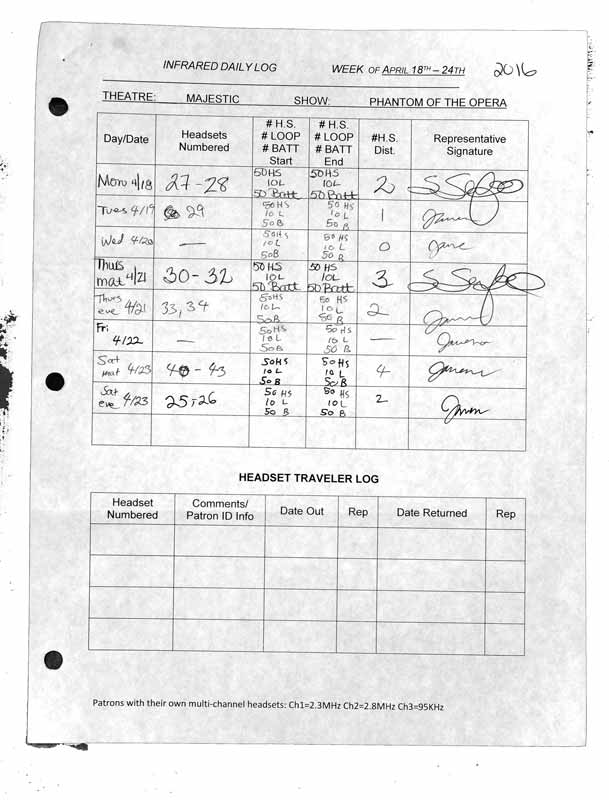 INFRARED DAILY LOG WEEK OF APRIL 18TH – 24TH 2016
THEATRE: MAJESTIC SHOW: PHANTOM OF THE OPERA
Day/Date Headsets Numbered # H.S. # LOOP # BATT Start # H.S. # LOOP # BATT End #H.S. Dist. Representative Signature
Mon 4/18 27-28 50HS 10L 50 Batt 50HS 10L 50 Batt 2
Tues 4/19 29 50HS 10 L 50B 50 HS 10 L 50 B 1
Wed 4/20 — 50HS 10 L 50B 50 HS 10 L 50 B 0
Thurs mat 4/21 30-32 50 HS 10L 50 Batt 50 HS 10L 50 Batt 3
Thurs eve 4/21 33, 34 50HS 10 L 50B 50 HS 10 L 50 B 2
Fri 4/22 — 50HS 10 L 50B 50 HS 10 L 50 B —
Sat mat 4/23 40 - 43 50HS 10 L 50 B 50 HS 10 L 50 B 4
Sat eve 4/23 25, 26 50 HS 10 L 50 B 50 HS 10 L 50 B 2
HEADSET TRAVELER LOG
Headset Numbered Comments/ Patron ID Info Date Out Rep Date Returned Rep
Patrons with their own multi-channel headsets: Ch1=2.3MHz Ch2=2.8MHz Ch3=95KHz